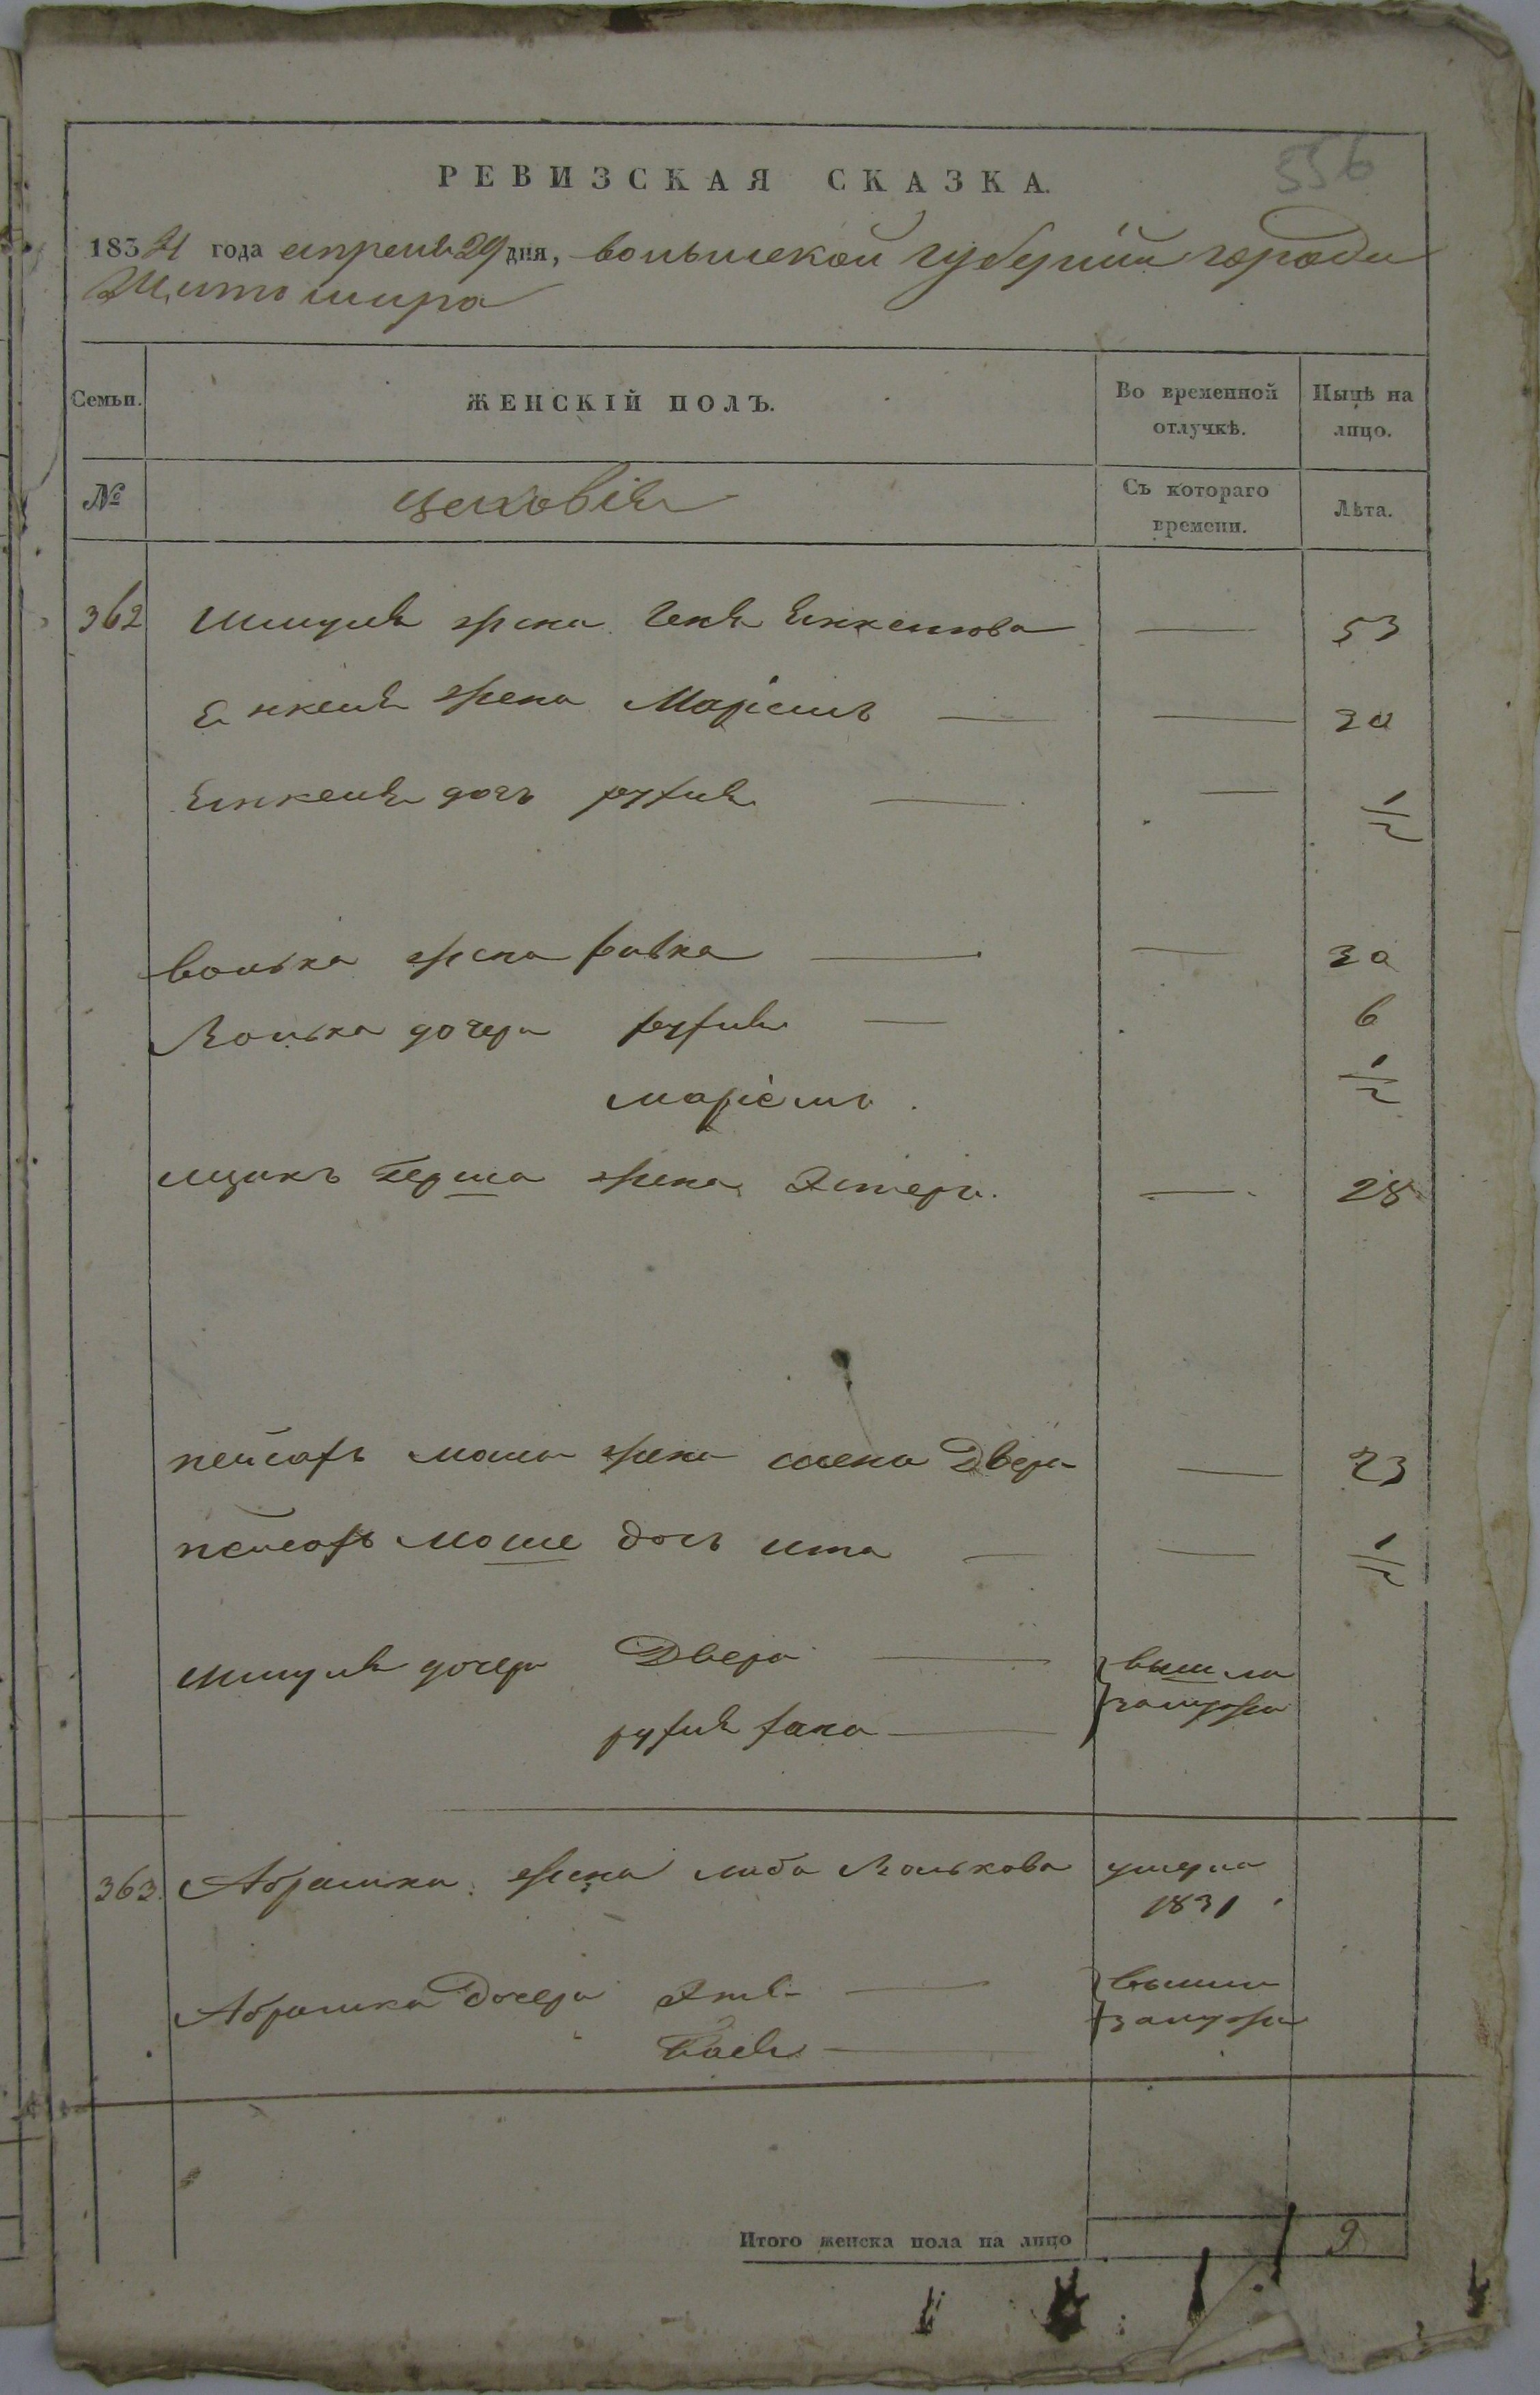 556
РЕВИЗСКАЯ СКАЗКА.
1834 года апреля 29 дня, волынской губернии города
Житомира
Семьи. ЖЕНСКІЙ ПОЛЪ. Во временной отлучкѣ. Нынѣ на лицо.
№ цеховія Съ котораго времени. Лѣта.
362 Шмуля жена Геня Янкелюва — 53
Янкеля жена Маріемъ — — 30
Янкеля дочъ рухля — — 1/2
волька жена ривка — — 30
Волька дочери рухля — 6
маріемъ 1/2
ицикъ герша жена Эстеръ. — 28
пейсахъ моша жена Двера — 23
пейсахъ моше дочъ ита — — 1/2
Шмуля дочери Двера — вышла
рухля — замужъ
363. Абрамка жена либа Волькова умерла
1831
Абрамка Дочери — вышли
Бася — замужъ
Итого женска пола на лицо 9